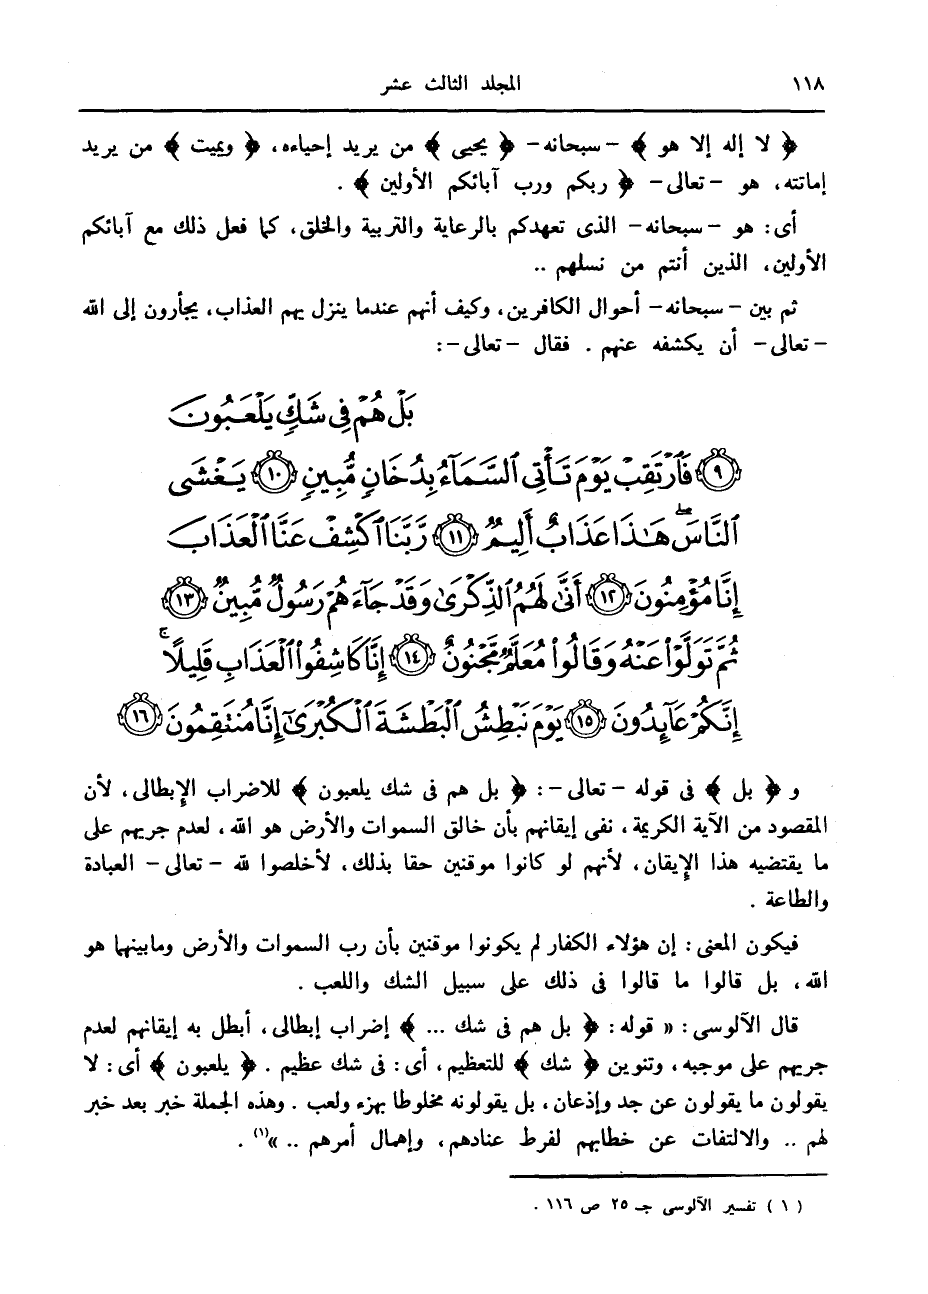 ١١٨ المجلد الثالث عشر
﴿ لا إله إلا هو ﴾ – سبحانه – ﴿ يحيى ﴾ من يريد إحياءه، ﴿ ويميت ﴾ من يريد
إماتته، هو – تعالى – ﴿ ربكم ورب آبائكم الأولين ﴾ .
أى: هو – سبحانه – الذى تعهدكم بالرعاية والتربية والخلق، كما فعل ذلك مع آبائكم
الأولين، الذين أنتم من نسلهم ..
ثم بين – سبحانه – أحوال الكافرين، وكيف أنهم عندما ينزل بهم العذاب، يجأرون إلى الله
– تعالى – أن يكشفه عنهم . فقال – تعالى –:
بَلْ هُمْ فِى شَكٍّ يَلْعَبُونَ
٩ فَٱرْتَقِبْ يَوْمَ تَأْتِى ٱلسَّمَآءُ بِدُخَانٍ مُّبِينٍ ١٠ يَغْشَى
ٱلنَّاسَۖ هَٰذَا عَذَابٌ أَلِيمٌ ١١ رَّبَّنَا ٱكْشِفْ عَنَّا ٱلْعَذَابَ
إِنَّا مُؤْمِنُونَ ١٢ أَنَّىٰ لَهُمُ ٱلذِّكْرَىٰ وَقَدْ جَآءَهُمْ رَسُولٌ مُّبِينٌ ١٣
ثُمَّ تَوَلَّوْا۟ عَنْهُ وَقَالُوا۟ مُعَلَّمٌ مَّجْنُونٌ ١٤ إِنَّا كَاشِفُوا۟ ٱلْعَذَابِ قَلِيلًاۚ
إِنَّكُمْ عَآئِدُونَ ١٥ يَوْمَ نَبْطِشُ ٱلْبَطْشَةَ ٱلْكُبْرَىٰٓ إِنَّا مُنتَقِمُونَ ١٦
و ﴿ بل ﴾ فى قوله – تعالى –: ﴿ بل هم فى شك يلعبون ﴾ للاضراب الإبطالى، لأن
المقصود من الآية الكريمة، نفى إيقانهم بأن خالق السموات والأرض هو الله، لعدم جريهم على
ما يقتضيه هذا الإيقان، لأنهم لو كانوا موقنين حقا بذلك، لأخلصوا لله – تعالى – العبادة
والطاعة .
فيكون المعنى: إن هؤلاء الكفار لم يكونوا موقنين بأن رب السموات والأرض ومابينهما هو
الله، بل قالوا ما قالوا فى ذلك على سبيل الشك واللعب .
قال الآلوسى: « قوله: ﴿ بل هم فى شك ... ﴾ إضراب إبطالى، أبطل به إيقانهم لعدم
جريهم على موجبه، وتنوين ﴿ شك ﴾ للتعظيم، أى: فى شك عظيم . ﴿ يلعبون ﴾ أى: لا
يقولون ما يقولون عن جد وإذعان، بل يقولونه مخلوطا بهزء ولعب . وهذه الجملة خبر بعد خبر
لهم .. والالتفات عن خطابهم لفرط عنادهم، وإهمال أمرهم .. »(١) .
( ١ ) تفسير الآلوسى جـ ٢٥ ص ١١٦ .